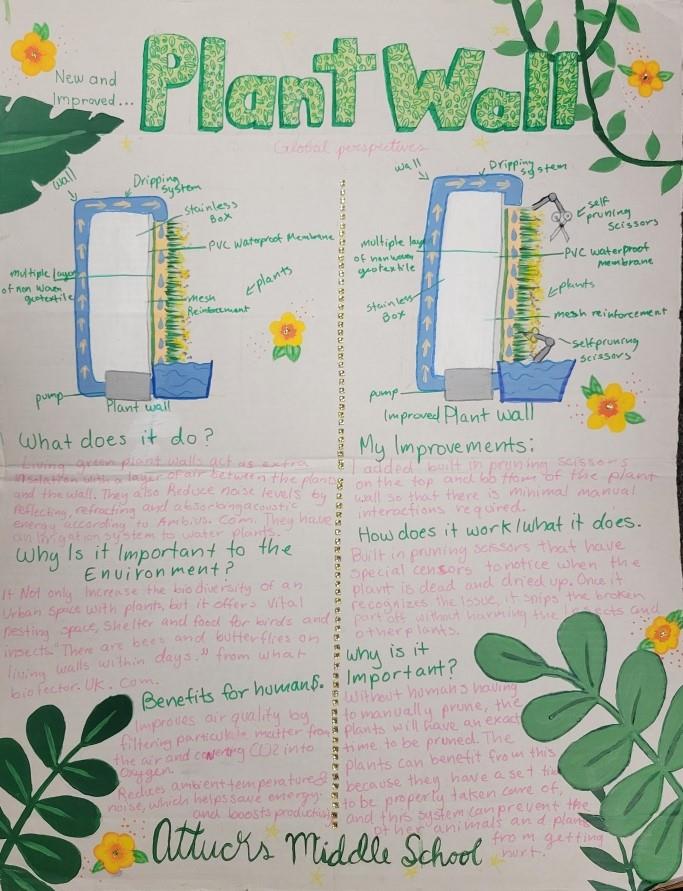 New and
Improved...
Plant Wall
Global perspectives
wall
Dripping
system
stainless
Box
PVC Waterproof Membrane
multiple layer
of non woven
geotextile
plants
mesh
Reinforcement
pump
Plant wall
What does it do?
Living green plant walls act as extra
insolation with a layer of air between the plants
and the wall. They also Reduce noise levels by
reflecting, refracting and absorbing acoustic
energy according to Ambius. Com. They have
an irrigation system to water plants.
Why Is it Important to the
Environment?
It Not only Increase the biodiversity of an
Urban space with plants, but it offers vital
nesting space, shelter and food for birds and
insects. There are bees and butterflies on
living walls within days." from what
biofector. UK. Com.
Benefits for humans.
Improves air quality by
filtering particulate matter from
the air and coverting CO2 into
Oxygen.
Reduces ambient temperature &
noise, which helps save energy
and boosts productivity
wall
Dripping
system
self
pruning
scissors
multiple lay
of non woven
geotextile
PVC waterproof
membrane
stainless
Box
plants
mesh reinforcement
self pruning
scissors
pump
Improved Plant wall
My Improvements:
I added built in pruning scissors
on the top and bottom of the plant
wall so that there is minimal manual
interactions required.
How does it work/what it does.
Built in pruning scissors that have
special censors to notice when the
plant is dead and dried up. Once it
recognizes the issue, it snips the broken
part off without harming the Insects and
other plants.
Why is it
Important?
Without humans having
to manually prune, the
plants will have an exact
time to be pruned. The
plants can benefit from this
because they have a set time
to be properly taken care of,
and this system can prevent the
other animals and plants
from getting
hurt.
Attucks Middle School